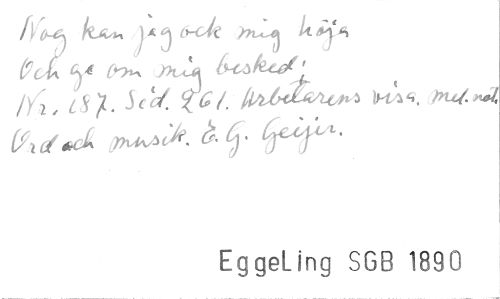 Nog kan jag ock mig höja
Och ge om mig besked;
Nr. 187. Sid. 261. Arbetarens visa. mel. not.
Ord och musik. E. G. Geijer.
EggeLing SGB 1890